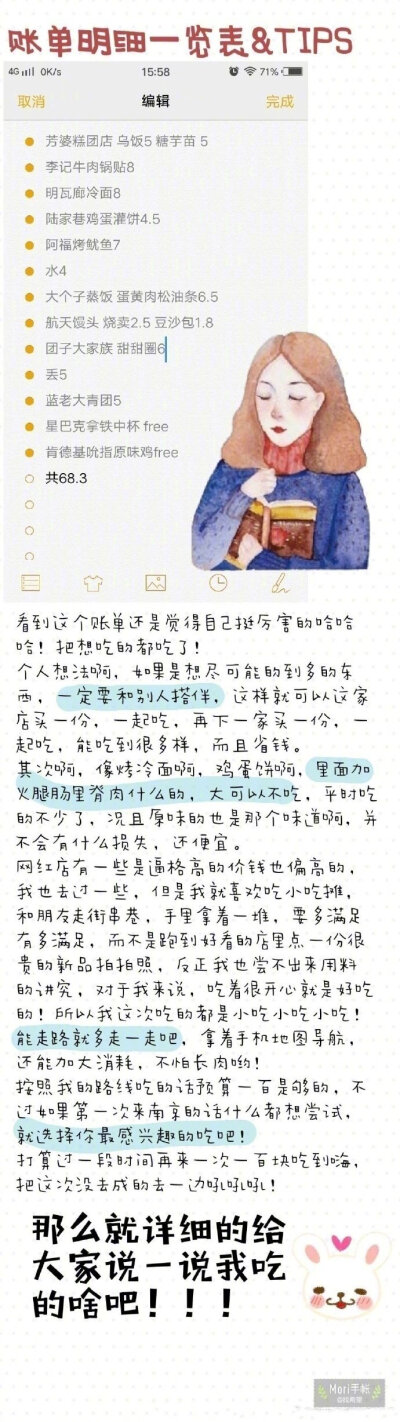 账单明细一览表&TIPS
4G 0K/s 15:58 71%
取消 编辑 完成
芳婆糕团店 乌饭5 糖芋苗 5
李记牛肉锅贴8
明瓦廊冷面8
陆家巷鸡蛋灌饼4.5
阿福烤鱿鱼7
水4
大个子蒸饭 蛋黄肉松油条6.5
航天馒头 烧卖2.5 豆沙包1.8
团子大家族 甜甜圈6
丢5
蓝老大青团5
星巴克拿铁中杯 free
肯德基吮指原味鸡free
共68.3
看到这个账单还是觉得自己挺厉害的哈哈
哈！把想吃的都吃了！
个人想法啊，如果是想尽可能的到多的东
西，一定要和别人搭伴，这样就可以这家
店买一份，一起吃，再下一家买一份，一
起吃，能吃到很多样，而且省钱。
其次啊，像烤冷面啊，鸡蛋饼啊，里面加
火腿肠里脊肉什么的，大可以不吃，平时吃
的不少了，况且原味的也是那个味道啊，并
不会有什么损失，还便宜。
网红店有一些是逼格高的价钱也偏高的，
我也去过一些，但是我就喜欢吃小吃摊，
和朋友走街串巷，手里拿着一堆，要多满足
有多满足，而不是跑到好看的店里点一份很
贵的新品拍拍照，反正我也尝不出来用料
的讲究，对于我来说，吃着很开心就是好吃
的！所以我这次吃的都是小吃小吃小吃！
能走路就多走一走吧，拿着手机地图导航，
还能加大消耗，不怕长肉哟！
按照我的路线吃的话预算一百是够的，不
过如果第一次来南京的话什么都想尝试，
就选择你最感兴趣的吃吧！
打算过一段时间再来一次一百块吃到嗨，
把这次没去成的去一边吼吼吼！
那么就详细的给
大家说一说我吃
的啥吧！！！
Mori手帐